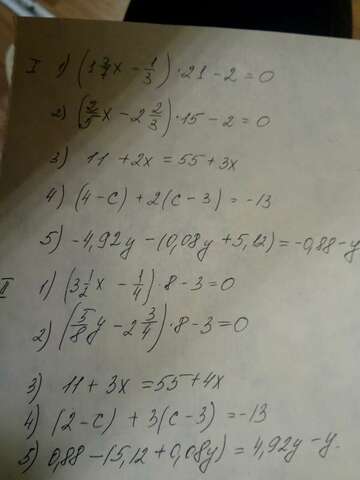 I 1) (1 3/7 x - 1/3) · 21 - 2 = 0
2) (2/5 x - 2 2/3) · 15 - 2 = 0
3) 11 + 2x = 55 + 3x
4) (4 - c) + 2(c - 3) = -13
5) -4,92y - (0,08y + 5,12) = -0,88 - y
II 1) (3 1/2 x - 1/4) · 8 - 3 = 0
2) (5/8 y - 2 3/4) · 8 - 3 = 0
3) 11 + 3x = 55 + 4x
4) (2 - c) + 3(c - 3) = -13
5) 0,88 - (5,12 + 0,08y) = 4,92y - y.